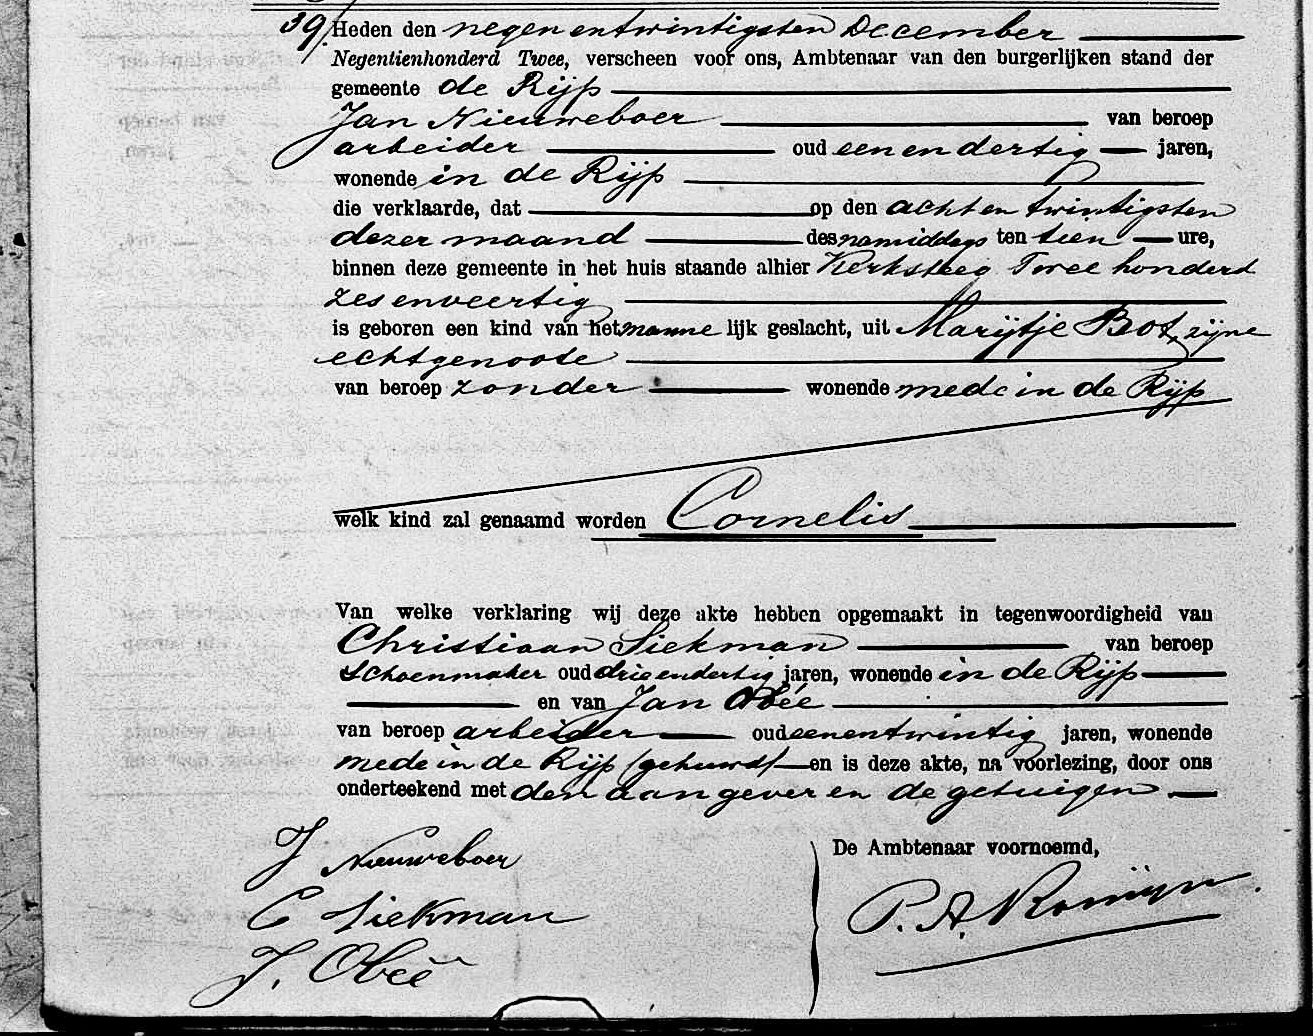 39/. Heden den negen en twintigsten December
Negentienhonderd Twee, verscheen voor ons, Ambtenaar van den burgerlijken stand der
gemeente de Rijp
Jan Nieuweboer van beroep
arbeider oud een en dertig jaren,
wonende in de Rijp
die verklaarde, dat op den acht en twintigsten
dezer maand des namiddags ten tien ure,
binnen deze gemeente in het huis staande alhier Kerksteeg Twee honderd
zes en veertig
is geboren een kind van het manne lijk geslacht, uit Marijtje Bot, zijne
echtgenoote
van beroep zonder wonende mede in de Rijp
welk kind zal genaamd worden Cornelis
Van welke verklaring wij deze akte hebben opgemaakt in tegenwoordigheid van
Christiaan Siekman van beroep
Schoenmaker oud drie en dertig jaren, wonende in de Rijp
en van Jan Obée
van beroep arbeider oud een en twintig jaren, wonende
mede in de Rijp /gehuwd/ en is deze akte, na voorlezing, door ons
onderteekend met den aangever en de getuigen.
De Ambtenaar voornoemd,
J Nieuweboer
C Siekman
J. Obeé
P. A. Romijn.